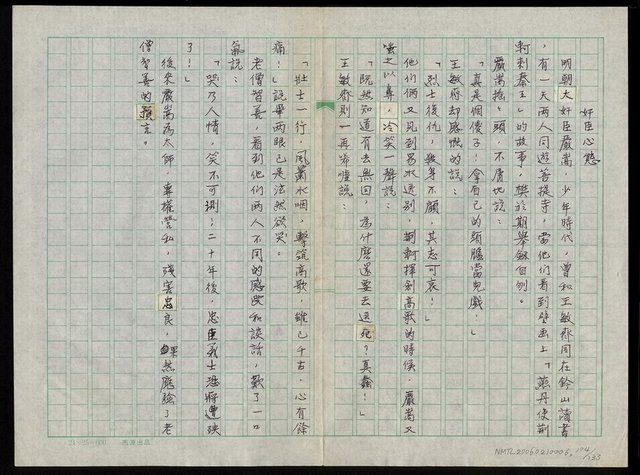 奸臣心態
明朝大奸臣嚴嵩，少年時代，曾和王敏齋同在鈐山讀書
，有一天兩人同遊菩提寺，當他們看到壁画上「燕丹使荆
軻刺秦王」的故事，樊於期舉劍自刎。
嚴嵩搖搖頭，不屑地說：
「真是個傻子！拿自己的頭臚當兒戲！」
王敏齋却感慨的說：
「烈士復仇，殺身不顧，其志可哀！」
他們倆又見到易水送別，荆軻揮劍高歌的時候，嚴嵩又
嗤之以鼻，冷笑一聲說：
「既然知道有去無回，為什麼還要去送死？真蠢！」
王敏齋則一再嗟嘆說：
「壯士一行，風蕭水咽，擊筑高歌，雖已千古，心有餘
痛！」說畢兩眼已是泫然欲哭。
老僧智善，看到他們兩人不同的感受和談話，歎了一口
氣說：
「哭乃人情，笑不可測！二十年後，忠臣烈士恐將遭殃
了！」
後來嚴嵩為太師，專權營私，殘害忠良，果然應驗了老
僧智善的預言。
21×25=600
NMTL20060210006, 104/133